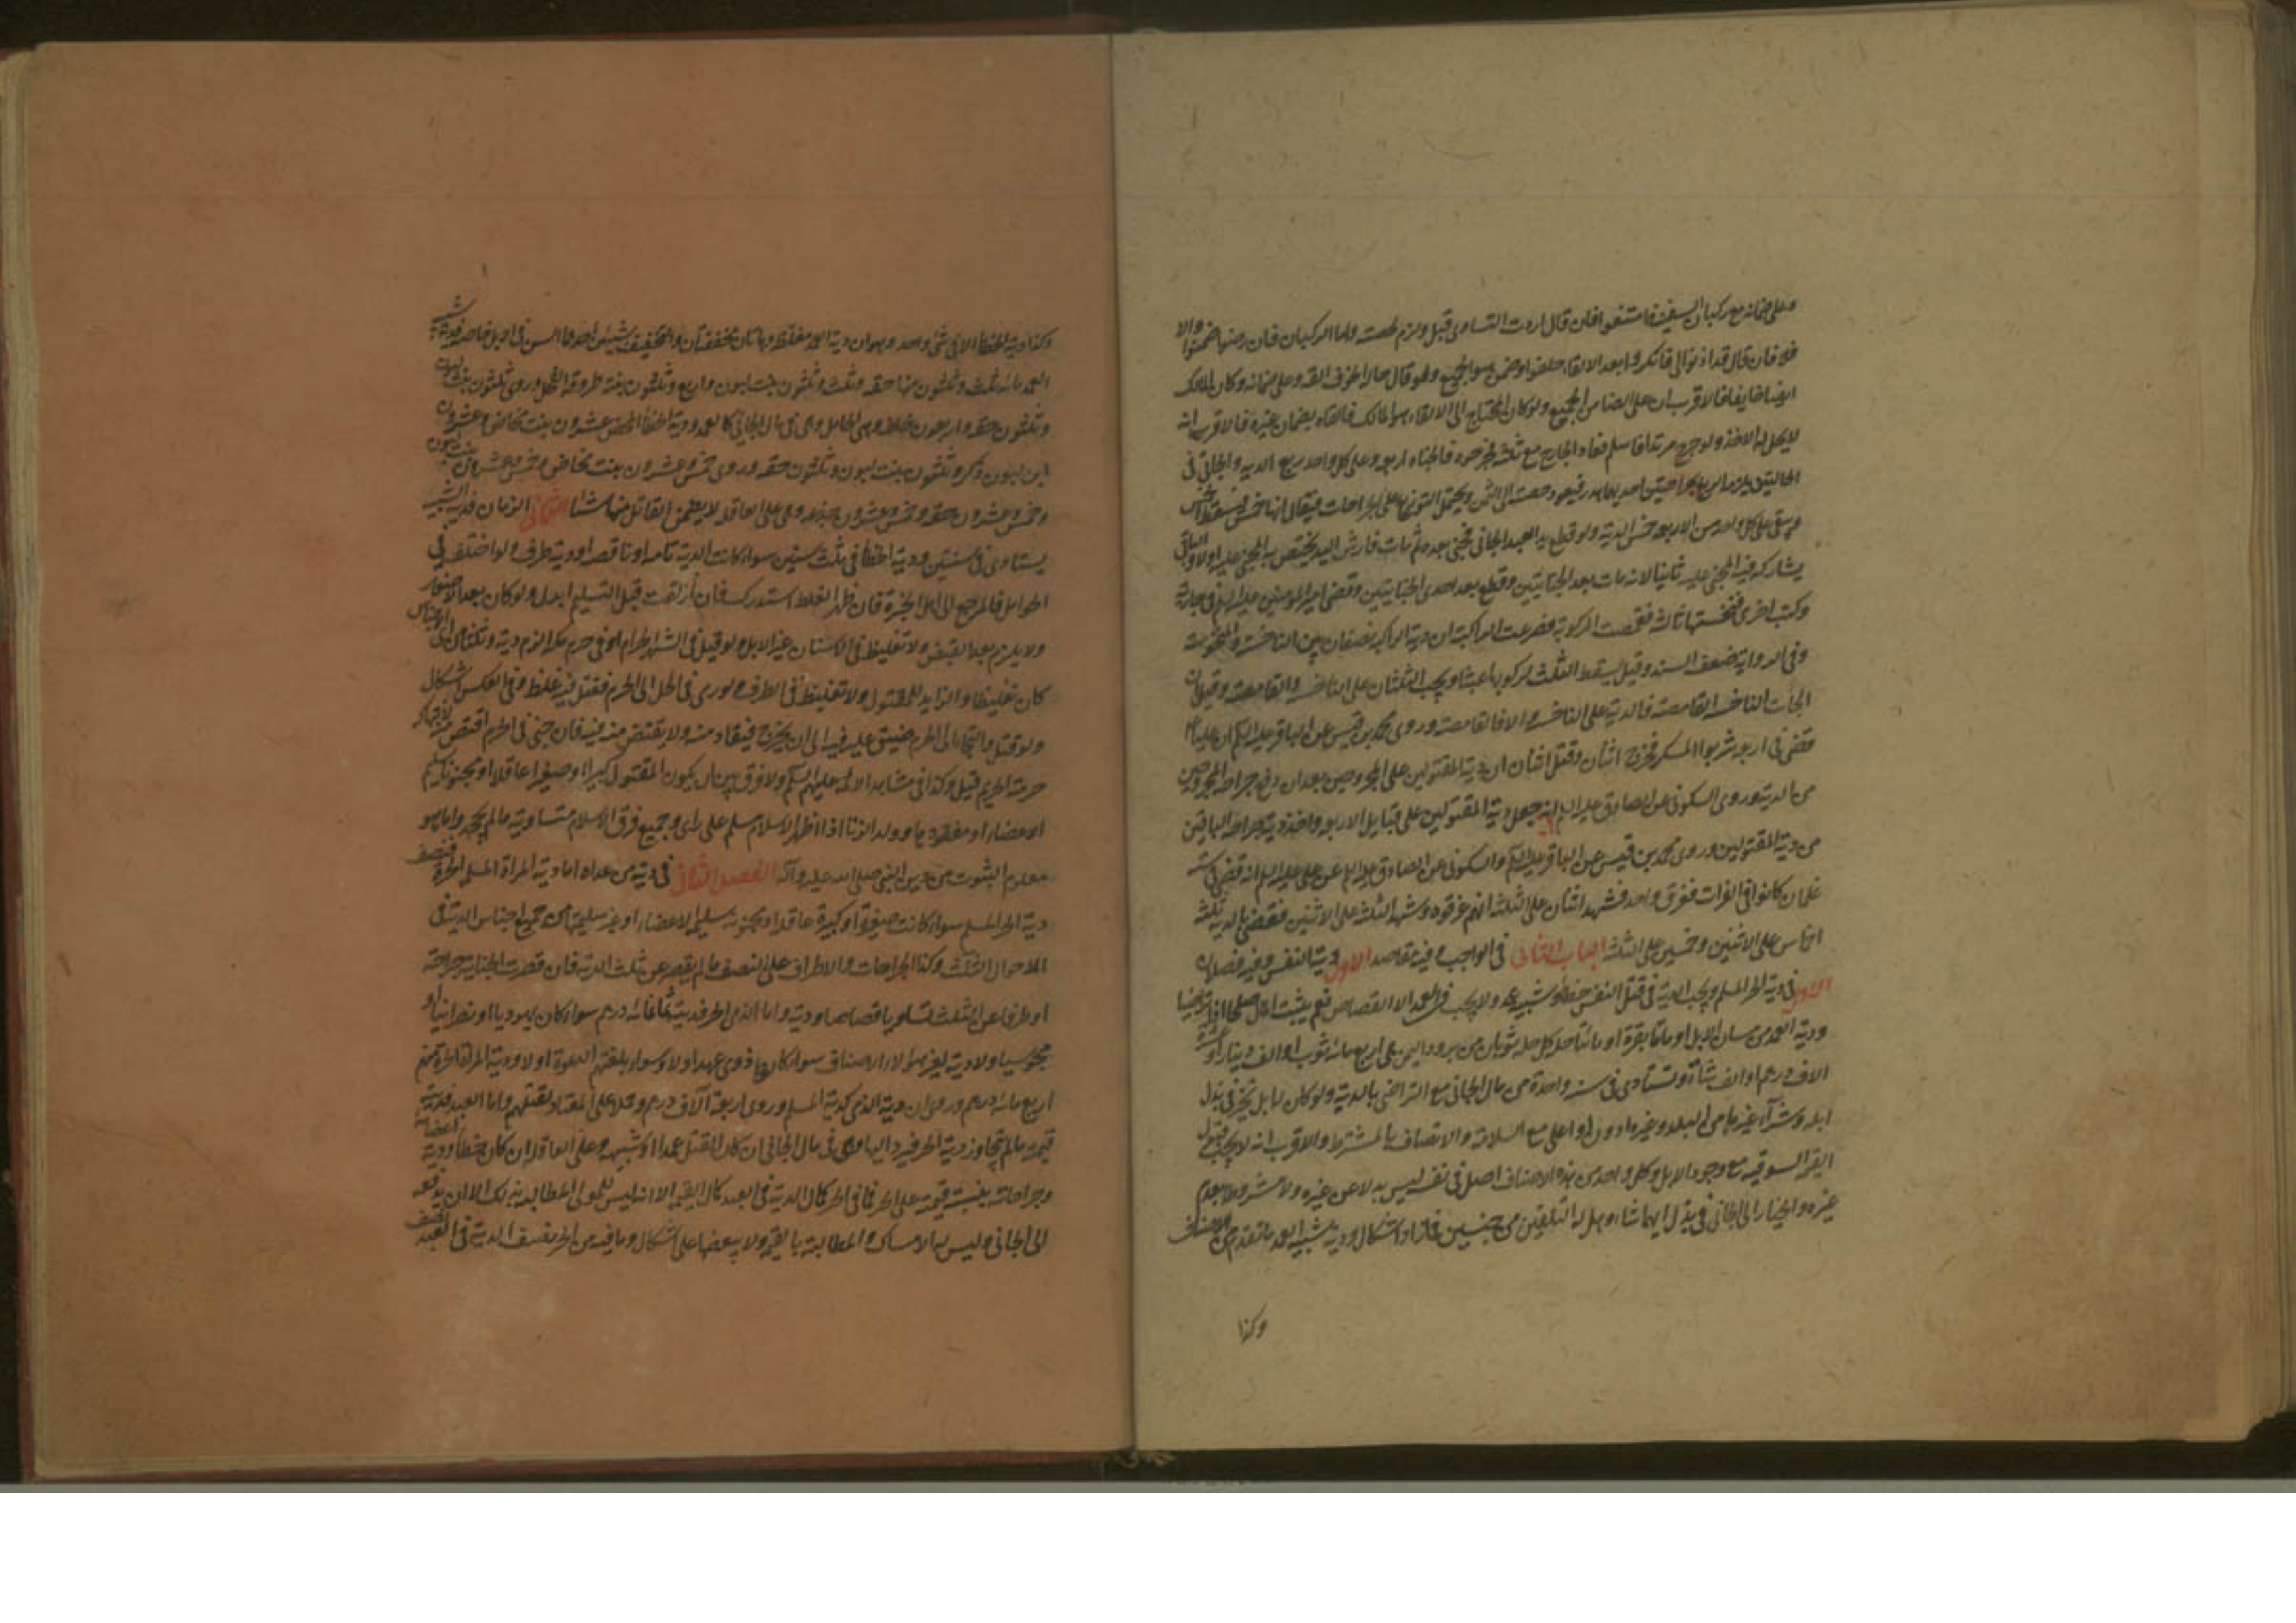 وعلى ضمانه مع ركبان السفينة فامتنعوا فان قال اردت التساوى قبل ولزم بحصته واما الركبان فان رضوا ضمنوا والا
فلا فان قال قد اذنوا لى فانكروا بعد الالقاء حلفوا وضمن هو الجميع ولو قال حال الخوف القه وعلى ضمانه وكان المالك
ايضا خايفا فالاقرب ان على الضامن الجميع ولو كان المحتاج الى الالقاء هو المالك فالقاه بضمان غيره فالاقرب انه
لا يحل له الاخذ ولو جرح مرتدا فاسلم فعاد الجارح مع ثلثة فجرحوه فالجناة اربعة وعلى كل واحد ربع الدية والجانى فى
الحالتين يلزمه الربع بجراحتين احديهما هدر فيعود حصته الى الثمن ويحتمل التوزيع على الجراحات فيقال انها خمس فيسقط الخمس
ويبقى على كل واحد من الاربعة خمس الدية ولو قطع يد العبد الجانى فجنى بعده ثم مات فارش اليد يختص به المجنى عليه اولا والباقى
يشاركه فيه المجنى عليه ثانيا لانه مات بعد الجنايتين وقطع بعد احدى الجنايتين وقضى امير المؤمنين عليه السلم فى جارية
ركبت اخرى فنخستها ثالثة فقمصت المركوبة فصرعت الراكبة ان دية الراكبة نصفان بين الناخسة والمنخوسة
وفى الرواية ضعف السند وقيل يسقط الثلث لركوبها عبثا ويجب الثلثان على الناخسة والقامصة وقيل ان
الجات الناخسة القامصة فالدية على الناخسة والا فالقامصة وروى محمد بن قيس عن الباقر عليه السلم ان عليا ع
قضى فى اربعة شربوا المسكر فجرح اثنان وقتل اثنان ان دية المقتولين على المجروحين بعد ان ترفع جراحة المجروحين
من الدية وروى السكونى عن الصادق عليه السلم انه جعل دية المقتولين على قبايل الاربعة واخذ دية جراحة الباقين
من دية المقتولين وروى محمد بن قيس عن الباقر عليه السلم والسكونى عن الصادق عليه السلم عن على عليه السلم انه قضى فى ستة
غلمان كانوا فى الفرات فغرق واحد فشهد اثنان على الثلثة انهم غرقوه وشهد الثلثة على الاثنين فقضى بالدية ثلثة
اخماس على الاثنين وخمسين على الثلثة الباب الثانى فى الواجب وفيه مقاصد الاول دية النفس وفيه فصلان
الاول فى دية الحر المسلم ويجب الدية فى قتل النفس خطأ وشبيه عمد ولا يجب فى العمد الا القصاص نعم يثبت المال صلحا
ودية العمد من مسان الابل او مائتا بقرة او مائتا حلة كل حلة ثوبان من برود اليمن هى اربع مائة ثوب او الف دينار او عشرة
الاف درهم او الف شاة وتستادى فى سنة واحدة من مال الجانى مع التراضى بالدية ولو كان له ابل تخير فى بذل
ابله وشراء غيرها من البلد وغيره ادون او اعلى مع السلامة والاتصاف بالمشترط والاقرب انه لا يجب قبول
القيمة السوقية مع وجود الابل وكل واحد من هذه الاصناف اصل فى نفسه ليس بدلا عن غيره ولا مشروطا بعدم
غيره والخيار الى الجانى فى بذل ايها شاء وهل له التلفيق من جنسين فما زاد اشكال ودية شبيه العمد ما تقدم من الاصناف
وكذا
وكذا دية الخطأ الا فى شئ واحد وهو ان دية العمد مغلظة وهاتان مخففتان والتخفيف بشيئين احدهما السن فى الابل خاصة فدية شبيه
العمد مائة ثلث وثلثون منها حقة وثلث وثلثون بنت لبون واربع وثلثون ثنية طروقة الفحل وروى ثلثون بنت لبون
وثلثون حقة واربعون خلفة وهى الحامل وهى فى مال الجانى كالعمد ودية الخطأ المحض عشرون بنت مخاض وعشرون
ابن لبون ذكر وثلثون بنت لبون وثلثون حقة وروى خمس وعشرون بنت مخاض وخمس وعشرون بنت لبون
وخمس وعشرون حقة وخمس وعشرون جذعة وهى على العاقلة لا يضمن القاتل منها شيئا الثانى الزمان فدية الشبيه
يستادى فى سنتين ودية الخطأ فى ثلث سنين سواء كانت الدية تامة او ناقصة او دية طرف ولو اختلف فى
الحوامل فالمرجع الى اهل الخبرة فان ظهر الغلط استدرك فان ازلقت قبل التسليم ابدل ولو كان بعد الاحضار
ولا يلزم بعد القبض ولا تغليظ فى الاسنان غير الابل ولو قتل فى الشهر الحرام او فى حرم مكة الزم دية وثلثا من اى الاجناس
كان تغليظا والزايد للمقتول ولا تغليظ فى الطرف ولو رمى فى الحل الى الحرم فقتل فيه غلظ وفى العكس اشكال
ولو قتل والتجا الى الحرم ضيق عليه فيه الى ان يخرج فيقاد منه ولا يقتص منه فيه فان جنى فى الحرم اقتص منه لانتهاكه
حرمة الحرم قيل وكذا فى مشاهد الائمة عليهم السلم ولا فرق بين ان يكون المقتول كبيرا او صغيرا عاقلا او مجنونا سليم
الاعضاء او مفقودها وولد الزنا اذا اظهر الاسلام مسلم على راى وجميع فرق الاسلام متساوية ما لم يجحد ما هو
معلوم الثبوت من دين النبى صلى الله عليه وآله الفصل الثانى فى دية من عداه اما دية المراة المسلمة الحرة فنصف
دية الحر المسلم سواء كانت صغيرة او كبيرة عاقلة او مجنونة سليمة الاعضاء او غير سليمتها من جميع اجناس الدية فى
الاحوال الثلث وكذا الجراحات والاطراف على النصف ما لم يقصر عن ثلث الدية فان قصرت الجناية جراحة
او طرفا عن الثلث تساويا قصاصا ودية واما الذمى الحر فديته ثمانمائة درهم سواء كان يهوديا او نصرانيا او
مجوسيا ولا دية لغير هؤلاء الاصناف سواء كانوا ذوى عهد او لا وسواء بلغتهم الدعوة او لا ودية المراة الحرة منهم
اربع مائة درهم وروى ان دية الذمى كدية المسلم وروى اربعة آلاف درهم وحملا على المعتاد لقتلهم واما العبد فديته
قيمته ما لم تتجاوز دية الحر فيرد اليها وهى فى مال الجانى ان كان القتل عمدا او شبيهه وعلى العاقلة ان كان خطأ ودية اعضائه
وجراحاته بنسبة قيمته على الحر فما فى الحر كمال الدية فى العبد كمال القيمة الا انه ليس للمولى المطالبة بذلك الا ان يدفعه
الى الجانى وليس له الامساك والمطالبة بالقيمة ولا ببعضها على اشكال وما فيه من الحر نصف الدية فى العبد نصف